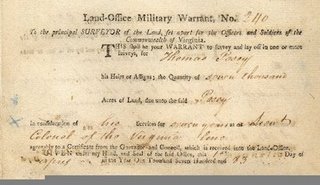 Land-Office Military Warrant, No. 240
To the principal SURVEYOR of the Land, set apart for the Officers and Soldiers of the
Commonwealth of Virginia.
THIS shall be your WARRANT to survey and lay off in one or more
Surveys, for Thomas Posey
his Heirs or Assigns, the Quantity of seven thousand
Acres of Land, due unto the said Posey
In consideration of his Services for seven years a Lieut
Colonel of the Virginia line
agreeably to a Certificate from the Governor and Council, which is received into the Land-Office.
GIVEN under my Hand, and Seal of the said Office, this Day of
in the Year One Thousand Seven Hundred and 83